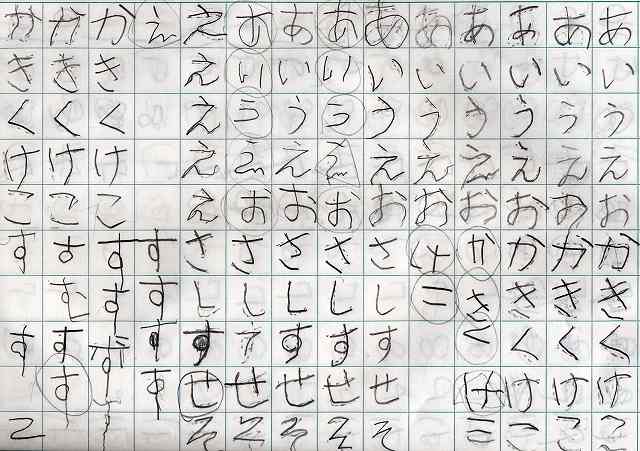 あいうえおかきくけこ
あいうえおかきくけこ
あいうえおかきくけこ
あいうえおかきくけこ
あいうえおけこ
あいうえおさしすせそ
あいうえおさしすせそ
あいうえおさしすせそ
あいうえおさしすせそ
えええええさしすせそ
えすすすす
かきくけこすす
かきくけこすむすす
かきくけこすす